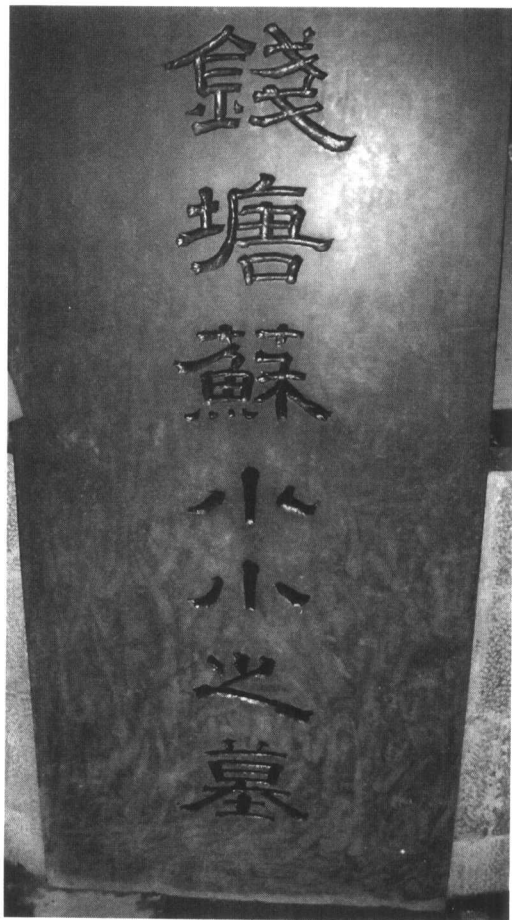 錢塘蘇小小之墓